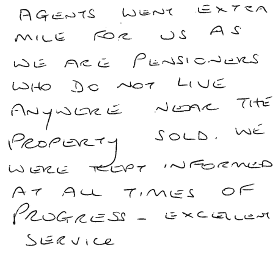 AGENTS WENT EXTRA
MILE FOR US AS
WE ARE PENSIONERS
WHO DO NOT LIVE
ANYWERE NEAR THE
PROPERTY SOLD. WE
WERE KEPT INFORMED
AT ALL TIMES OF
PROGRESS - EXCELLENT
SERVICE